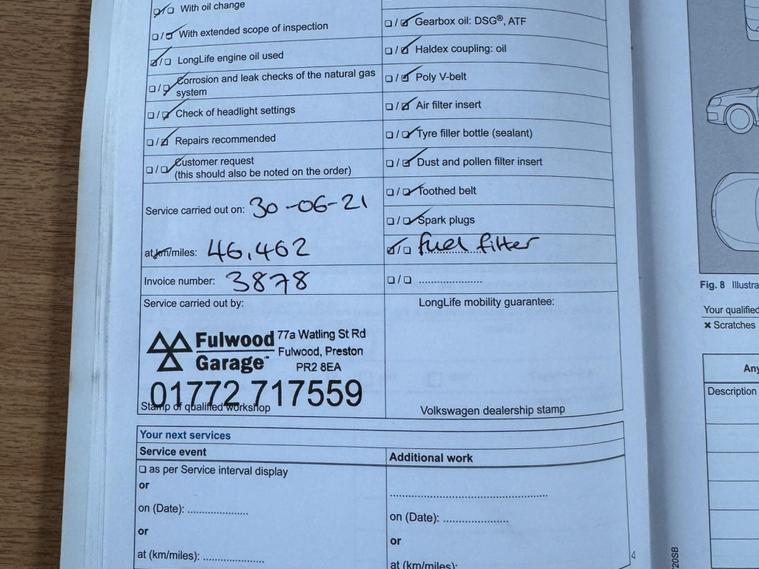 □/□ With oil change
□/□ With extended scope of inspection
□/□ LongLife engine oil used
□/□ Corrosion and leak checks of the natural gas
system
□/□ Check of headlight settings
□/□ Repairs recommended
□/□ Customer request
(this should also be noted on the order)
Service carried out on: 30-06-21
at km/miles: 46,462
Invoice number: 3878
Service carried out by:
Fulwood
Garage™
77a Watling St Rd
Fulwood, Preston
PR2 8EA
01772 717559
Stamp of qualified workshop
□/□ Gearbox oil: DSG®, ATF
□/□ Haldex coupling: oil
□/□ Poly V-belt
□/□ Air filter insert
□/□ Tyre filler bottle (sealant)
□/□ Dust and pollen filter insert
□/□ Toothed belt
□/□ Spark plugs
□/□ fuel filter
□/□ ....................
LongLife mobility guarantee:
Volkswagen dealership stamp
Your next services
Service event
□ as per Service interval display
or
on (Date): ...................
or
at (km/miles): ...................
Additional work
..................................................
on (Date): ...................
or
at (km/miles):
4
Fig. 8 Illustra
Your qualified
× Scratches
Any
Description
20SB